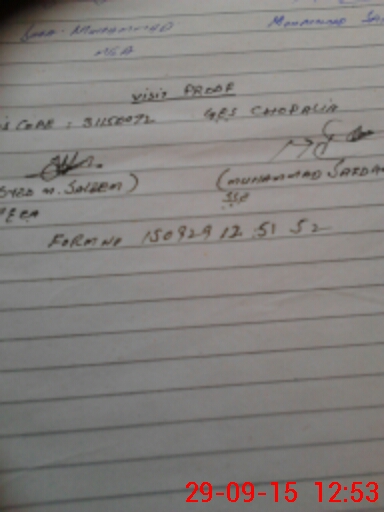 MUHAMMAD Muhammad
MEA
VISIT PROOF
CODE : 31150072 GPS CHOPALIA
SYED M. SALEEM) (MUHAMMAD
SSE
FORM NO 150929 12 51 52
29-09-15 12:53